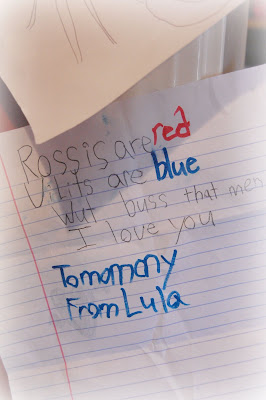 Rossis are red
Vilits are blue
Wut buss that men
I love you
Tomomony
From Lula